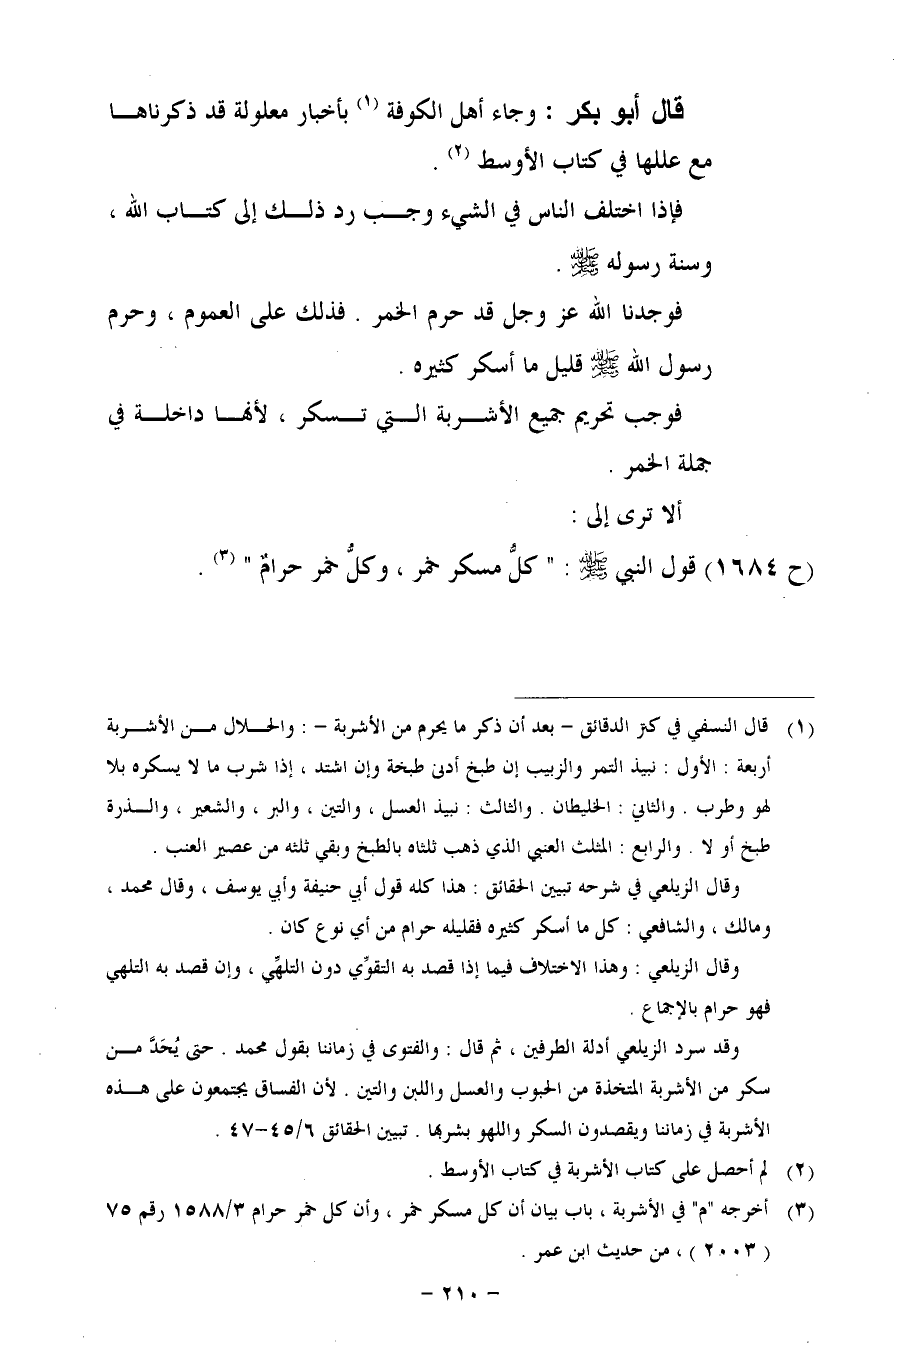 قال أبو بكر : وجاء أهل الكوفة (١) بأخبار معلولة قد ذكرناهــا
مع عللها في كتاب الأوسط (٢) .
فإذا اختلف الناس في الشيء وجــب رد ذلــك إلى كتــاب الله ،
وسنة رسوله ﷺ .
فوجدنا الله عز وجل قد حرم الخمر . فذلك على العموم ، وحرم
رسول الله ﷺ قليل ما أسكر كثيره .
فوجب تحريم جميع الأشــربة الــتي تــسكر ، لأنهــا داخلــة في
جملة الخمر .
ألا ترى إلى :
(ح ١٦٨٤) قول النبي ﷺ : " كلُّ مسكر خمر ، وكلُّ خمر حرامٌ " (٣) .
(١) قال النسفي في كتر الدقائق – بعد أن ذكر ما يحرم من الأشربة – : والحــلال مــن الأشــربة
أربعة : الأول : نبيذ التمر والزبيب إن طبخ أدنى طبخة وإن اشتد ، إذا شرب ما لا يسكره بلا
لهو وطرب . والثاني : الخليطان . والثالث : نبيذ العسل ، والتين ، والبر ، والشعير ، والــذرة
طبخ أو لا . والرابع : المثلث العنبي الذي ذهب ثلثاه بالطبخ وبقي ثلثه من عصير العنب .
وقال الزيلعي في شرحه تبيين الحقائق : هذا كله قول أبي حنيفة وأبي يوسف ، وقال محمد ،
ومالك ، والشافعي : كل ما أسكر كثيره فقليله حرام من أي نوع كان .
وقال الزيلعي : وهذا الاختلاف فيما إذا قصد به التقوِّي دون التلهِّي ، وإن قصد به التلهي
فهو حرام بالإجماع .
وقد سرد الزيلعي أدلة الطرفين ، ثم قال : والفتوى في زماننا بقول محمد . حتى يُحَدَّ مــن
سكر من الأشربة المتخذة من الحبوب والعسل واللبن والتين . لأن الفساق يجتمعون على هــذه
الأشربة في زماننا ويقصدون السكر واللهو بشربها . تبيين الحقائق ٤٥/٦–٤٧ .
(٢) لم أحصل على كتاب الأشربة في كتاب الأوسط .
(٣) أخرجه "م" في الأشربة ، باب بيان أن كل مسكر خمر ، وأن كل خمر حرام ١٥٨٨/٣ رقم ٧٥
( ٢٠٠٣ ) ، من حديث ابن عمر .
– ٢١٠ –